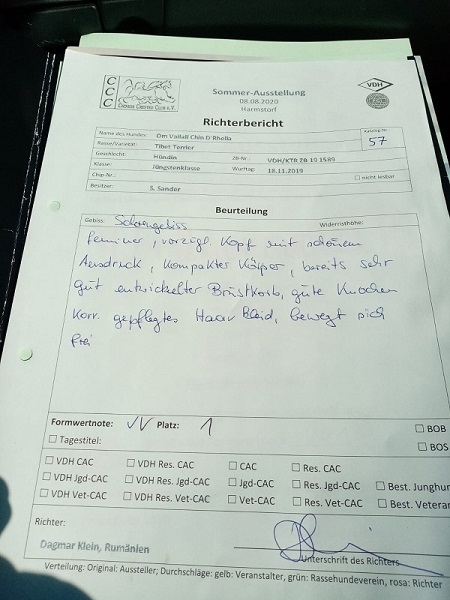 C
C
C
CHINESE CRESTED CLUB e.V.
Sommer-Ausstellung
08.08.2020
Harmstorf
VDH
Richterbericht
Name des Hundes: Om Vailall Chin D'Rheila
Katalog Nr.
57
Rasse/Varietät: Tibet Terrier
Geschlecht: Hündin ZB-Nr.: VDH/KTR ZB 19 1585
Klasse: Jüngstenklasse Wurftag: 18.11.2019
Chip-Nr.: ☐ nicht lesbar
Besitzer: S. Sander
Beurteilung
Gebiss: Scherengebiss Widerristhöhe:
feminer, vorzügl. Kopf mit schönem
Ausdruck, kompakter Körper, bereits sehr
gut entwickelter Brustkorb, gute Knochen
korr. gepflegtes Haarkleid, bewegt sich
frei
Formwertnote: VV Platz: 1
☐ BOB
☐ Tagestitel: ☐ BOS
☐ VDH CAC ☐ VDH Res. CAC ☐ CAC ☐ Res. CAC
☐ VDH Jgd-CAC ☐ VDH Res. Jgd-CAC ☐ Jgd-CAC ☐ Res. Jgd-CAC ☐ Best. Junghun
☐ VDH Vet-CAC ☐ VDH Res. Vet-CAC ☐ Vet-CAC ☐ Res. Vet-CAC ☐ Best. Veteran
Richter:
Dagmar Klein, Rumänien
Unterschrift des Richters
Verteilung: Original: Aussteller; Durchschläge: gelb: Veranstalter, grün: Rassehundeverein, rosa: Richter